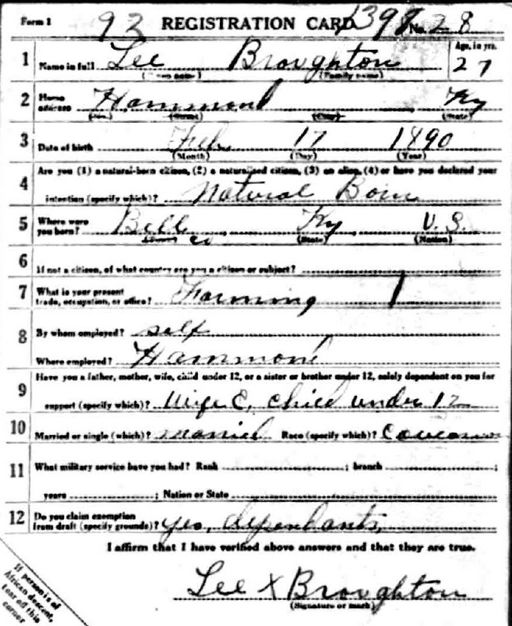 Form 1 92 REGISTRATION CARD 1398 No. 28
1 Name in full Lee Broughton Age, in yrs. 27
(Family name)
2 Home address Hammond Ky
(No.) (Street) (City) (State)
3 Date of birth Feb 17 1890
(Month) (Day) (Year)
4 Are you (1) a natural-born citizen, (2) a naturalized citizen, (3) an alien, (4) or have you declared your
intention (specify which)? Natural Born
5 Where were you born? Bell Co Ky U.S.
(State) (Nation)
6 If not a citizen, of what country are you a citizen or subject?
7 What is your present trade, occupation, or office? Farming
8 By whom employed? self
Where employed? Hammond
9 Have you a father, mother, wife, child under 12, or a sister or brother under 12, solely dependent on you for
support (specify which)? Wife &, child under 12
10 Married or single (which)? married Race (specify which)?
11 What military service have you had? Rank ; branch ;
years ; Nation or State
12 Do you claim exemption from draft (specify grounds)? yes, dependants
I affirm that I have verified above answers and that they are true.
Lee X Broughton
(Signature or mark)
If person is of
African descent,
tear off this
corner